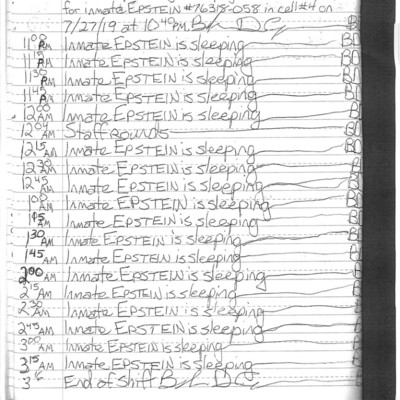 for inmate EPSTEIN #76318-058 in cell #4 on
7/27/19 at 10 40 PM.
11 00 PM Inmate EPSTEIN is sleeping
11 15 PM Inmate EPSTEIN is sleeping
11 30 PM Inmate EPSTEIN is sleeping
11 45 PM Inmate EPSTEIN is sleeping
12 00 AM Inmate EPSTEIN is sleeping
12 04 AM Staff rounds
12 15 AM Inmate EPSTEIN is sleeping
12 30 AM Inmate EPSTEIN is sleeping
12 45 AM Inmate EPSTEIN is sleeping
1 00 AM Inmate EPSTEIN is sleeping
1 15 AM Inmate EPSTEIN is sleeping
1 30 AM Inmate EPSTEIN is sleeping
1 45 AM Inmate EPSTEIN is sleeping
2 00 AM Inmate EPSTEIN is sleeping
2 15 AM Inmate EPSTEIN is sleeping
2 30 AM Inmate EPSTEIN is sleeping
2 45 AM Inmate EPSTEIN is sleeping
3 00 AM Inmate EPSTEIN is sleeping
3 15 AM Inmate EPSTEIN is sleeping
3 16 End of shift